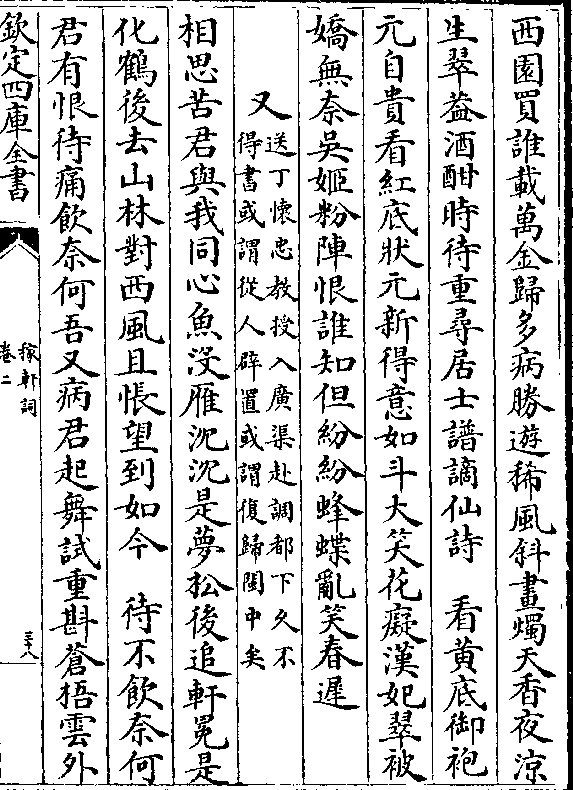 西園買誰載萬金歸多病勝遊稀風斜畫燭天香夜涼
生翠葢酒酣時待重尋居士譜謫仙詩　看黄底御袍
元自貴看紅底狀元新得意如斗大笑花癡漢妃翠被
嬌無奈吳姬粉陣恨誰知但紛紛蜂蝶亂笑春遲
又
送丁懷忠教授入廣渠赴調都下久不
得書或謂從人辟置或謂復歸閩中矣
相思苦君與我同心魚没雁沉沉是夢松後追軒冕是
化鶴後去山林對西風且悵望到如今　待不飲奈何
君有恨待痛飲奈何吾又病君起舞試重斟蒼梧雲外
欽定四庫全書
稼軒詞
卷二
三八